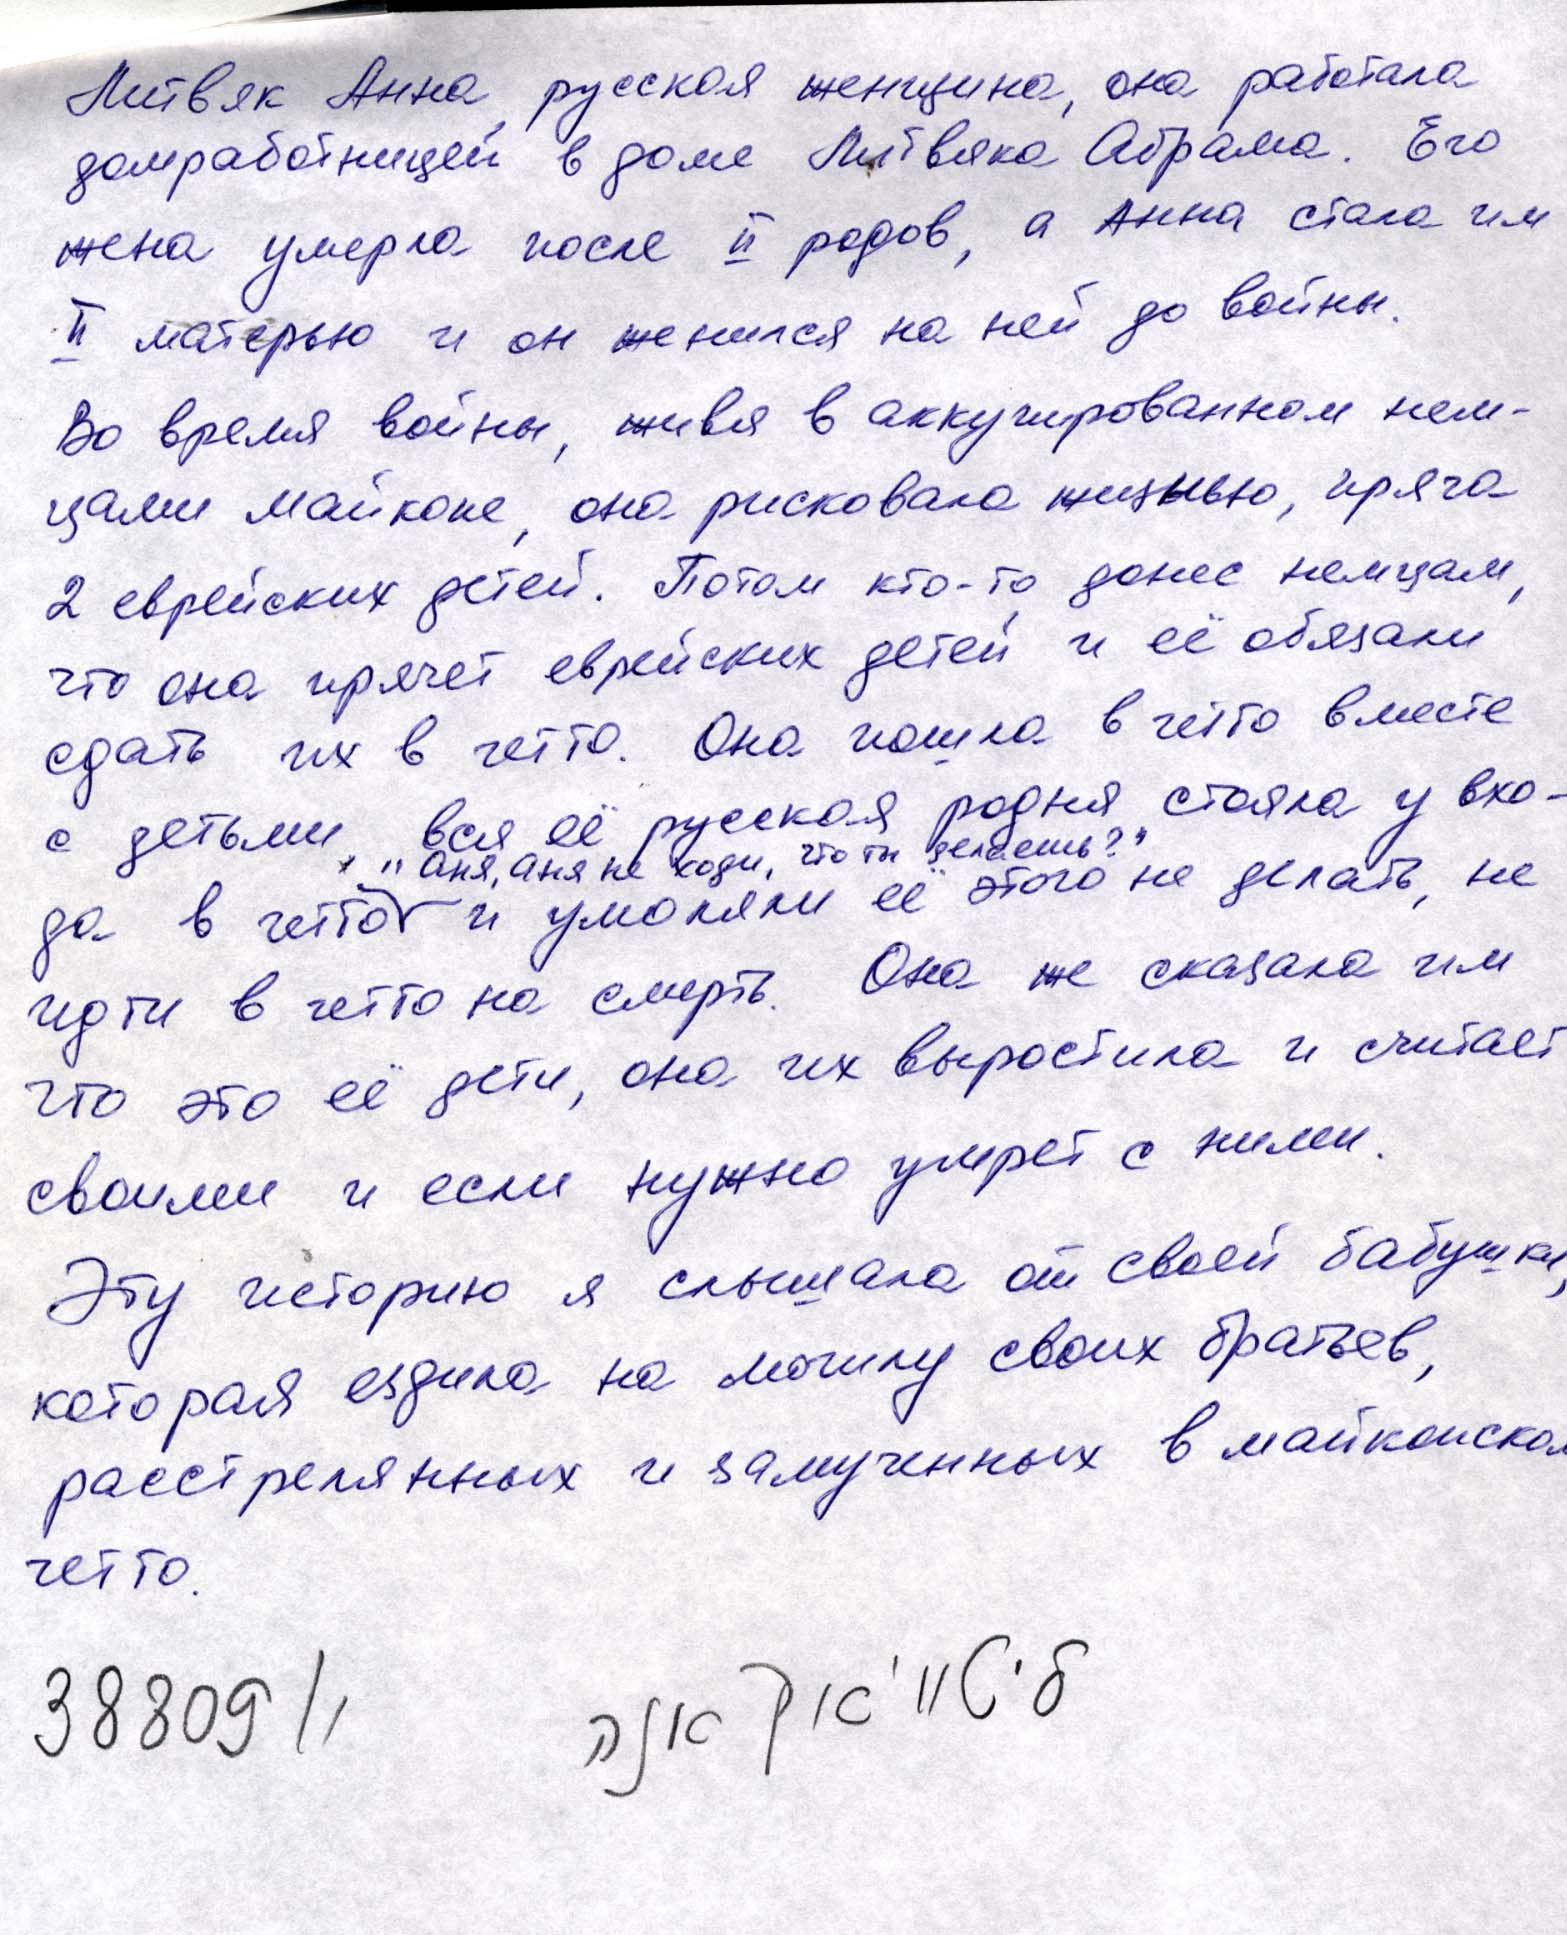 Литвяк Анна, русская женщина, она работала
домработницей в доме Литвяка Абрама. Его
жена умерла после II родов, а Анна стала им
II матерью и он женился на ней до войны.
Во время войны, живя в аккупированном нем-
цами Майкопе, она рисковала жизнью, пряча
2 еврейских детей. Потом кто-то донес немцам,
что она прячет еврейских детей и её обязали
сдать их в гетто. Она пошла в гетто вместе
с детьми, вся её русская родня стояла у вхо-
"Аня, Аня не ходи, что ты делаешь?"
да в гетто и умоляли её этого не делать, не
идти в гетто на смерть. Она же сказала им
что это её дети, она их выростила и считает
своими и если нужно умрет с ними.
Эту историю я слышала от своей бабушки,
которая ездила на могилу своих братьев,
расстрелянных и замученных в майкопском
гетто.
38809/1
ליטוויאק אנה